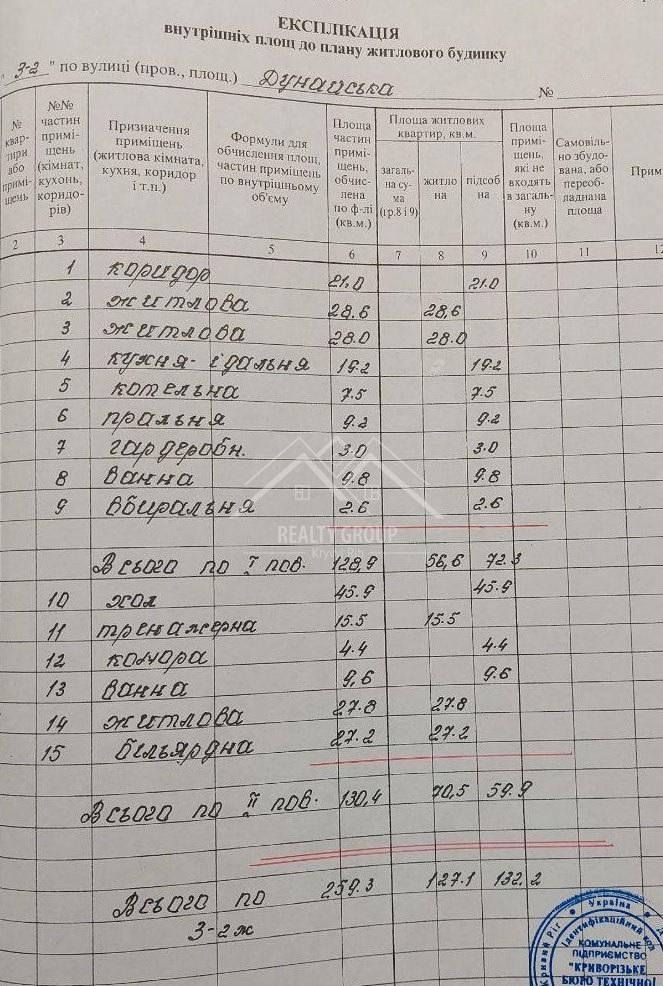 ЕКСПЛІКАЦІЯ
внутрішніх площ до плану житлового будинку
" З-2 " по вулиці (пров., площ.) Дунайська №
№ квартири або приміщень
№№ частин приміщень (кімнат, кухонь, коридорів)
Призначення приміщень (житлова кімната, кухня, коридор і т.п.)
Формули для обчислення площ, частин приміщень по внутрішньому об'єму
Площа частин приміщень, обчислена по ф-лі (кв.м.)
Площа житлових квартир, кв.м.
загальна сума (гр.8 і 9)
житлона
підсобна
Площа приміщень, які не входять в загальну (кв.м.)
Самовільно збудована, або переобладнана площа
Прим
2 3 4 5 6 7 8 9 10 11 12
1 коридор 21.0 21.0
2 житлова 28.6 28,6
3 житлова 28.0 28.0
4 кухня-їдальня 19.2 19.2
5 котельна 7.5 7.5
6 пральня 9.2 9.2
7 гардеробн. 3.0 3.0
8 ванна 9.8 9.8
9 вбиральня 2.6 2.6
REALTY GROUP
Kryvyi Rih
Всього по I пов. 128,9 56,6 72.3
10 хол 45.9 45.9
11 тренажерна 15.5 15.5
12 комора 4.4 4.4
13 ванна 9,6 9.6
14 житлова 27.8 27.8
15 більярдна 27.2 27.2
Всього по II пов. 130,4 70,5 59.9
Всього по 259.3 127.1 132,2
З-2ж
Україна
Кривий Ріг
Ідентифікаційний код
КОМУНАЛЬНЕ
ПІДПРИЄМСТВО
"КРИВОРІЗЬКЕ
БЮРО ТЕХНІЧНОЇ